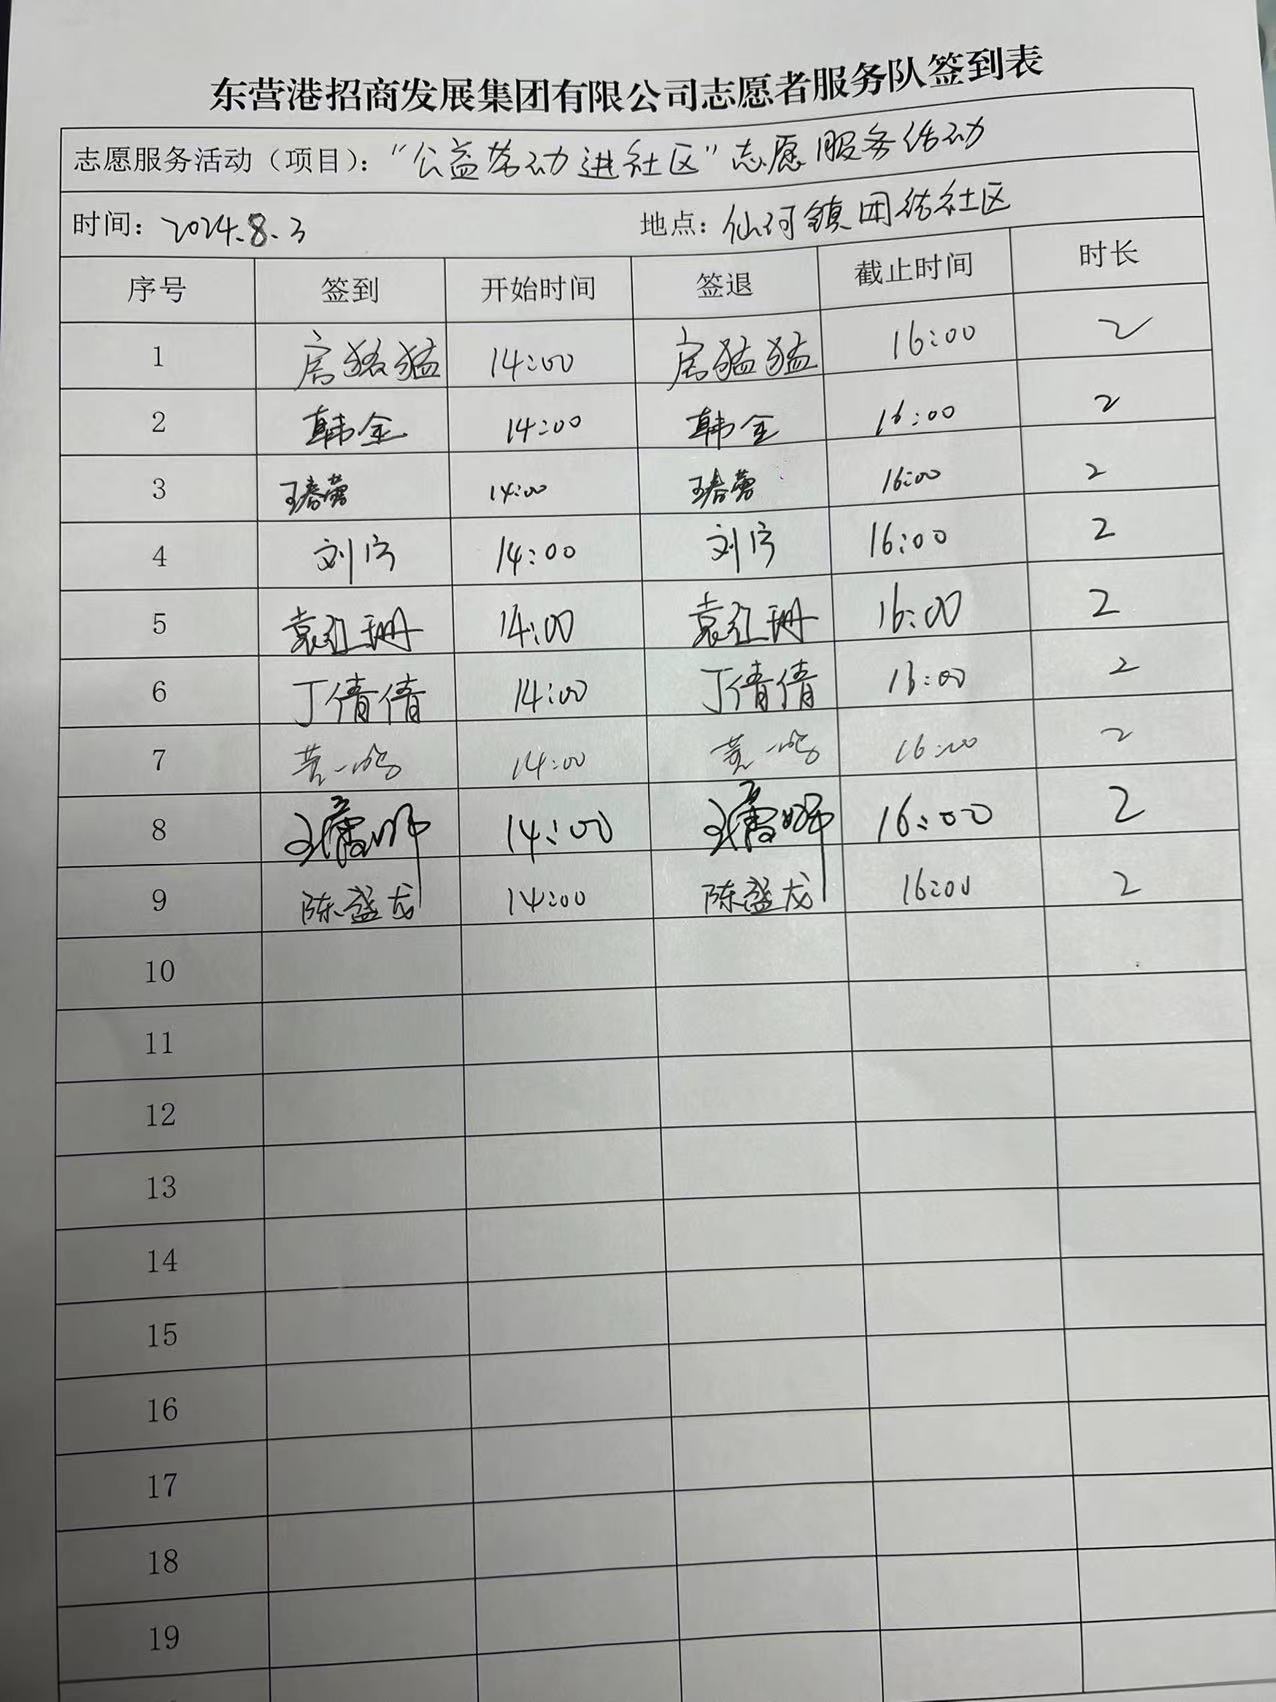 东营港招商发展集团有限公司志愿者服务队签到表
志愿服务活动（项目）：“公益劳动进社区”志愿服务活动
时间：2024.8.3 地点：仙河镇团结社区
序号 签到 开始时间 签退 截止时间 时长
1 房猛猛 14:00 房猛猛 16:00 2
2 韩金 14:00 韩金 16:00 2
3 14:00 16:00 2
4 刘 14:00 刘 16:00 2
5 袁红珊 14:00 袁红珊 16:00 2
6 丁倩倩 14:00 丁倩倩 16:00 2
7 14:00 16:00 2
8 14:00 16:00 2
9 陈盛龙 14:00 陈盛龙 16:00 2
10
11
12
13
14
15
16
17
18
19